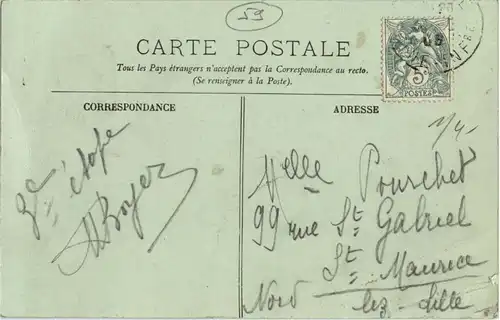 59
CARTE POSTALE
Tous les Pays étrangers n'acceptent pas la Correspondance au recto.
(Se renseigner à la Poste).
5c
POSTES
CORRESPONDANCE
2e étape
ABoyer
ADRESSE
1/4-
Melle Pourchet
99 rue St Gabriel
St Maurice
Nord lez-Lille